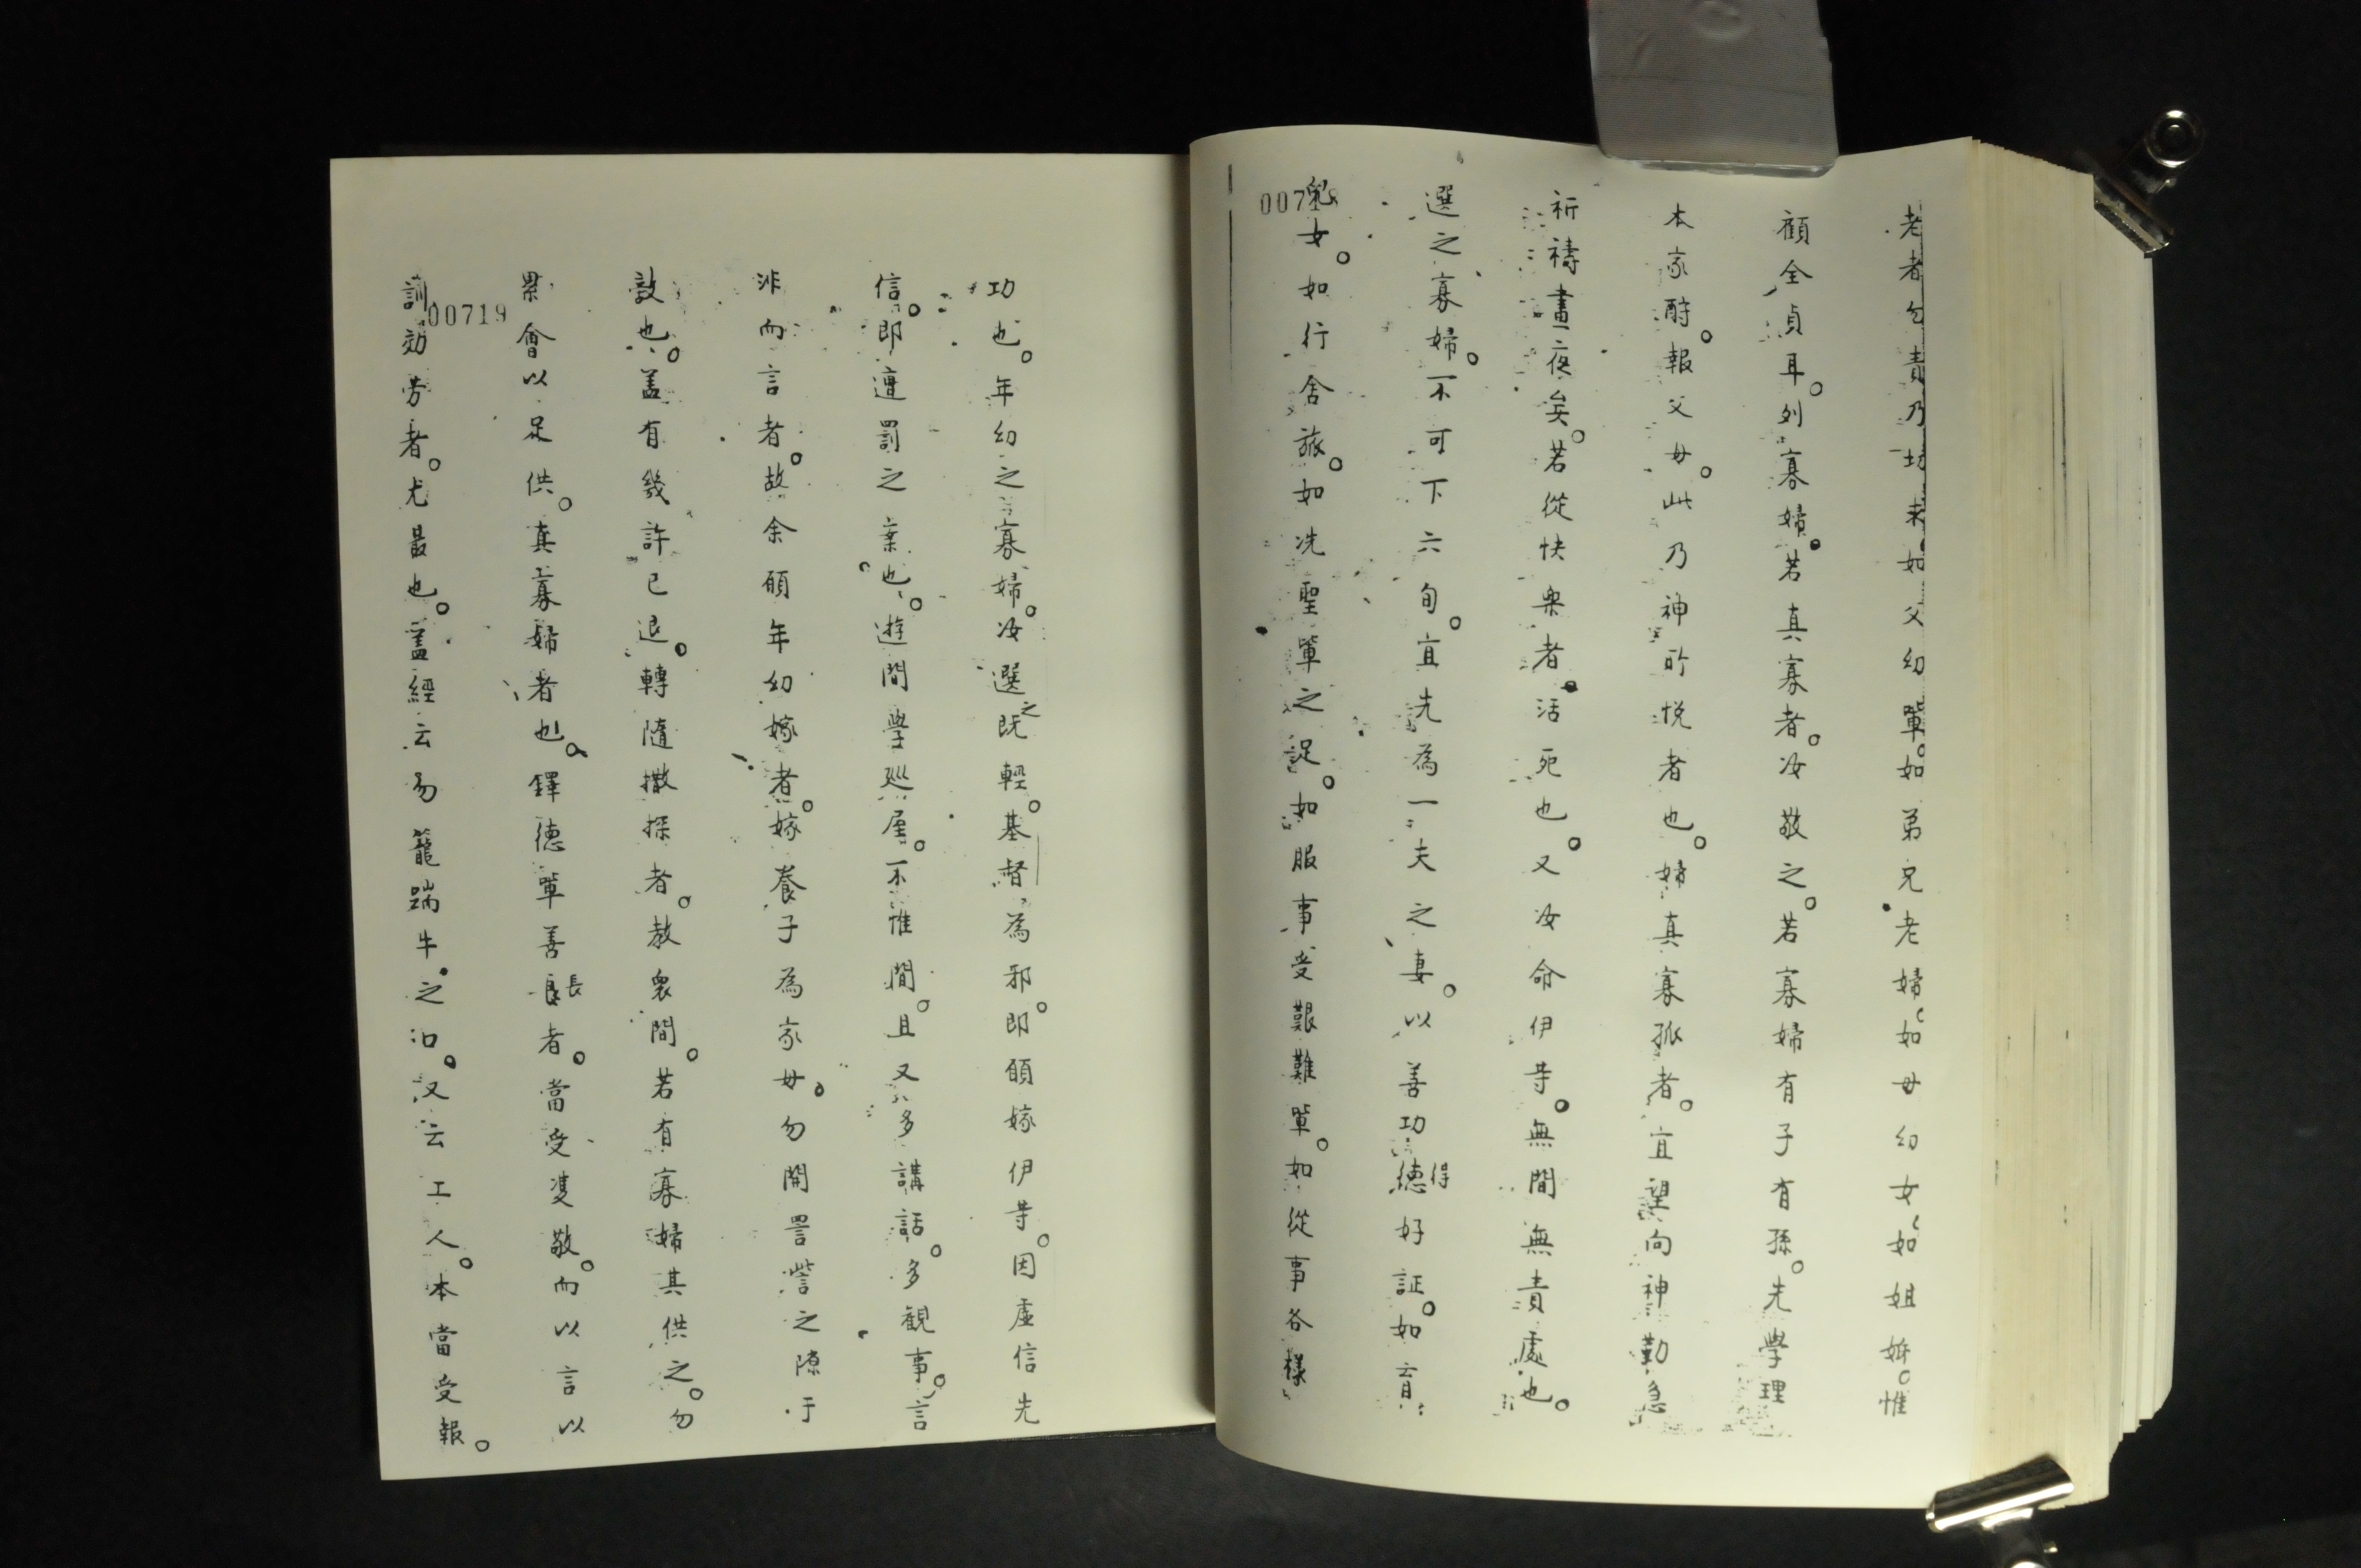 老者勿責乃坊求如父幼輩。如弟兄老婦。如母幼女。如姐姊。惟
顧全貞耳。列寡婦。若真寡者。汝敬之。若寡婦有子有孫。先學理
本家酧。報父母。此乃神所悅者也。婦真寡孤者。宜望向神勤急
祈禱晝夜矣。若從快樂者。活死也。又汝命伊等。無間無責處也。
選之寡婦。不可下六旬。宜先為一夫之妻。以善功德得好証。如育
兒女。如行舍旅。如洗聖輩之足。如服事受艱難輩。如從事各樣
00718
功也。年幼之寡婦。汝選之既輕。基督為邪。即願嫁伊等。因虛信先
信。即遭罰之案也。遊間學巡屋。不惟間。且又多講話。多観事。言
非而言者。故余願年幼嫁者。嫁養子為家母。勿開詈訾之隙于
敵也。盖有幾許已退。轉隨撒探者。教衆間。若有寡婦其供之。勿
累會以足供。真寡婦者也。鐸德輩善長者。當受雙敬。而以言以
訓効劳者。尤最也。盖經云勿籠踹牛之口。又云工人。本當受報。
00719